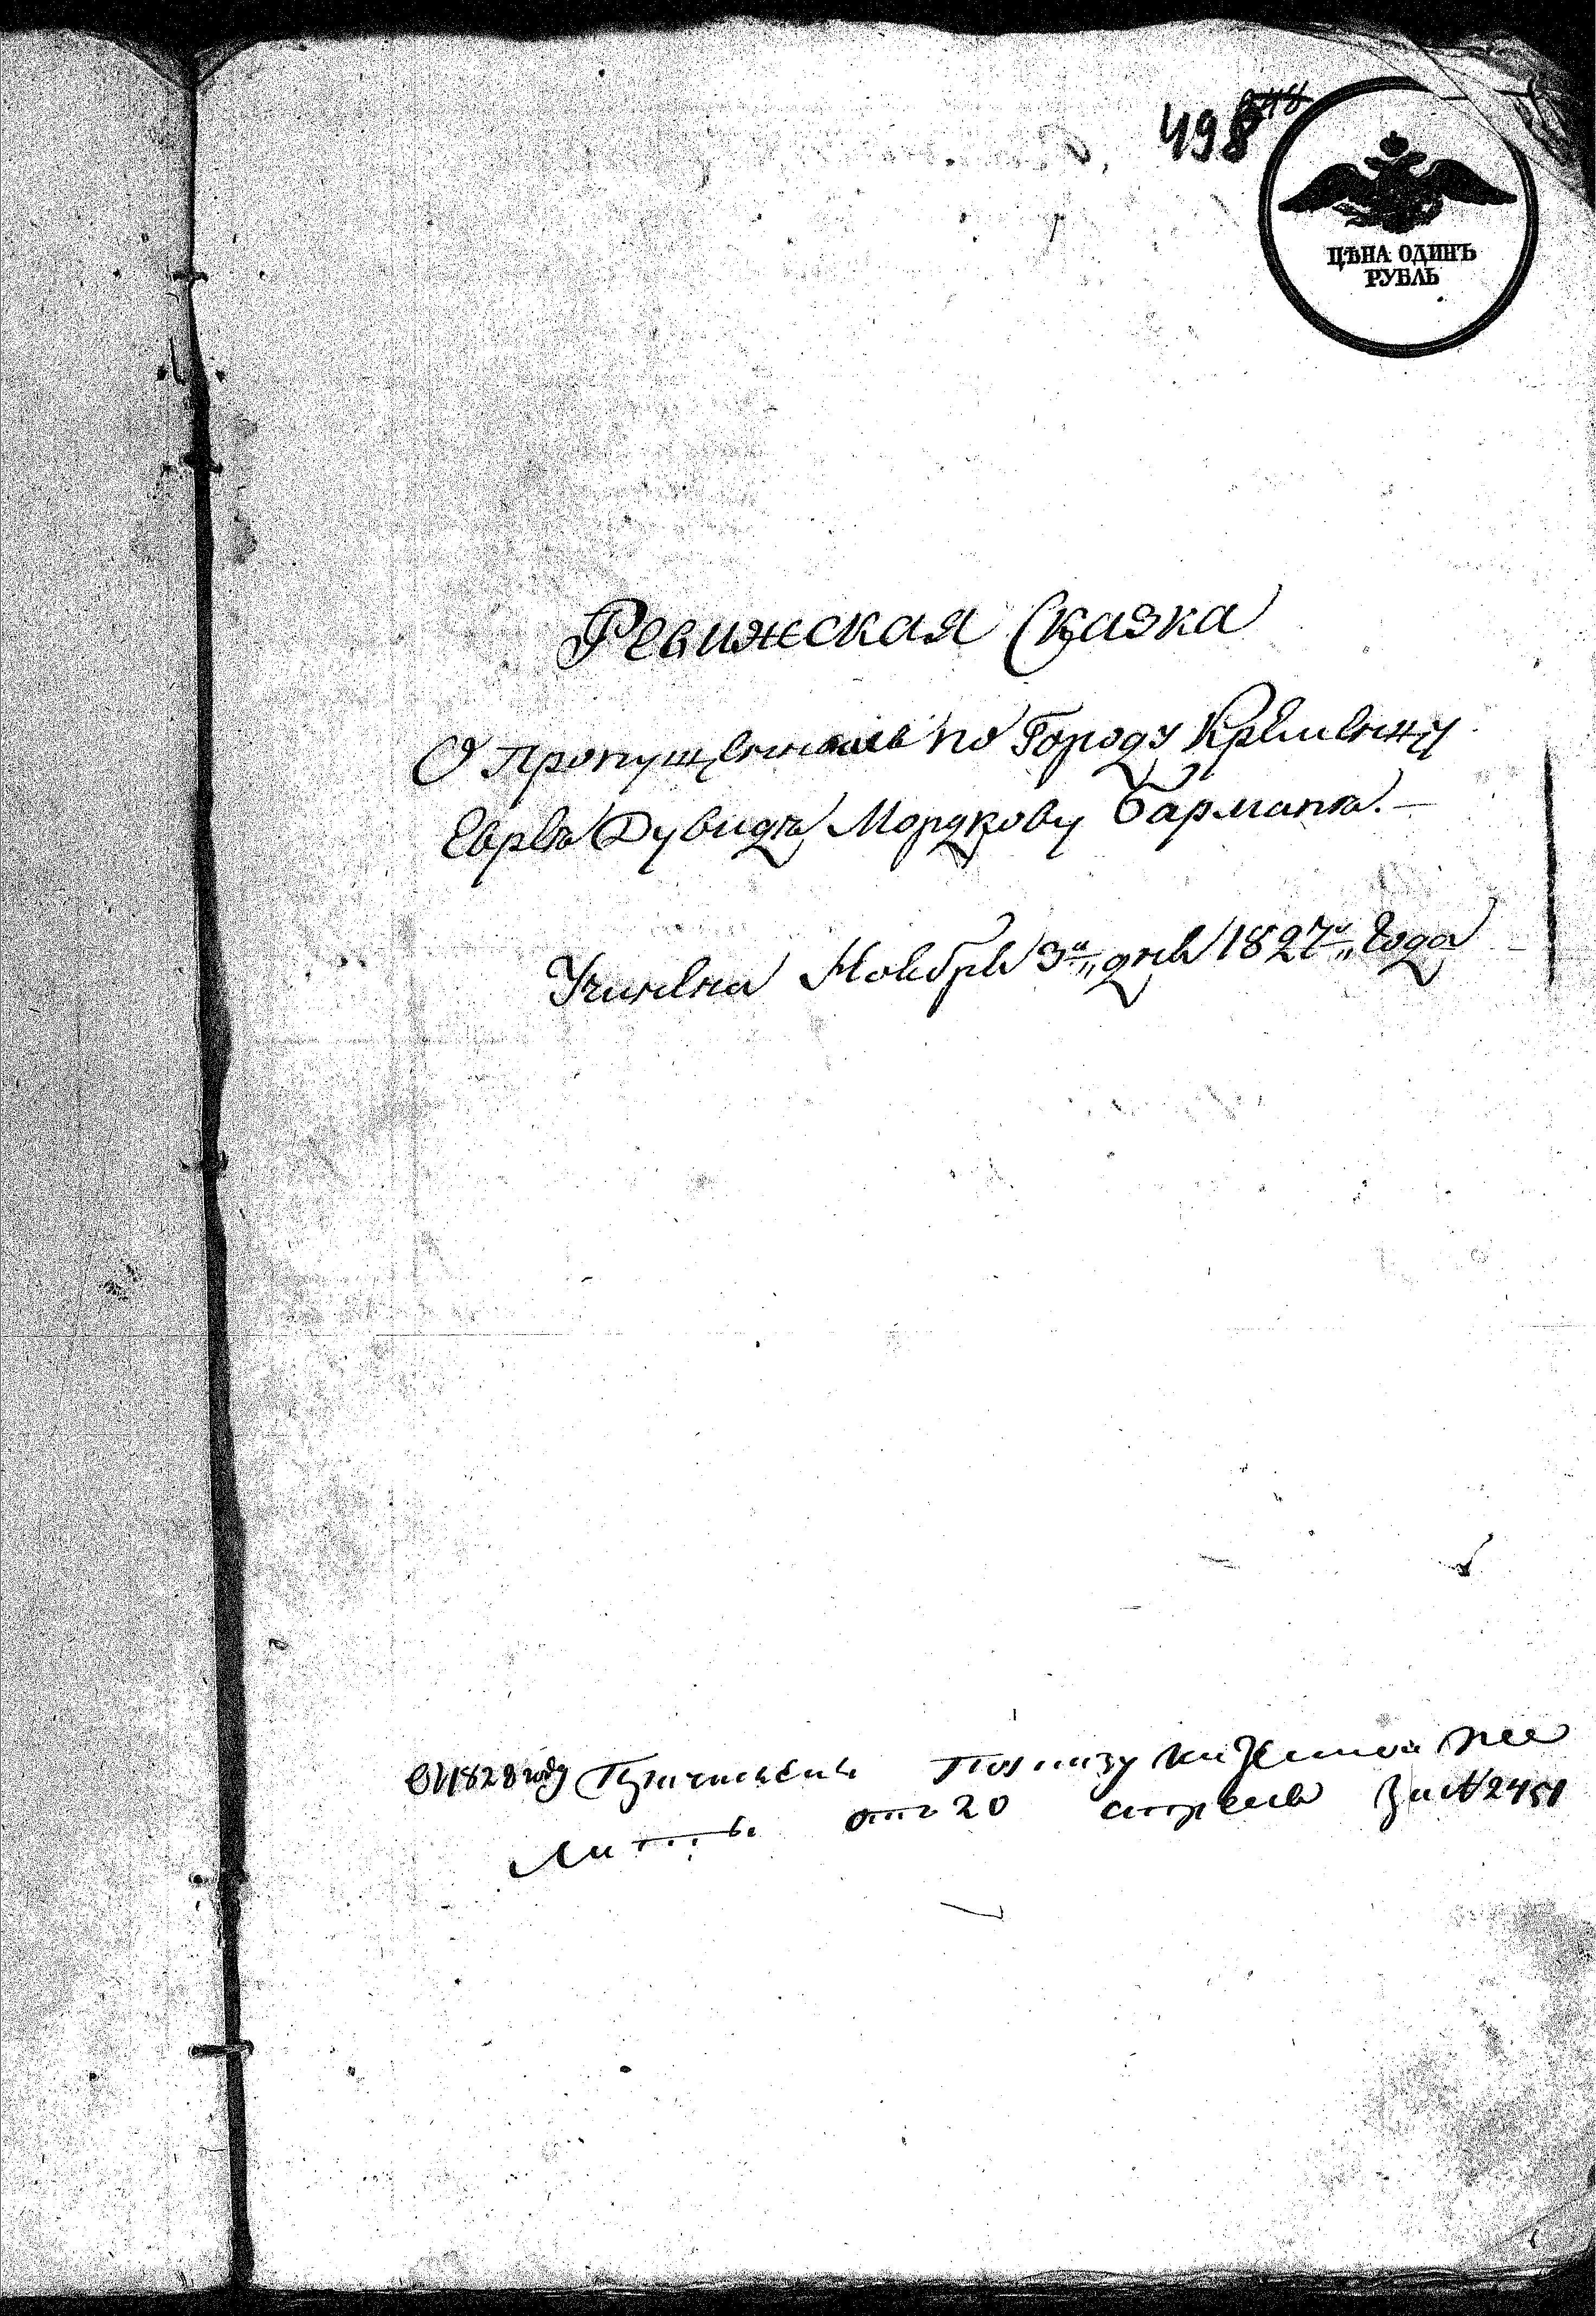 498
ЦѢНА ОДИНЪ
РУБЛЬ
Ревижская Сказка
О Пропущенномъ по Городу Кременцу
Еврѣѣ Дувидѣ Мордкову Барманѣ.
Учинена Ноября 3го дня 1827го Года
1828 году По указу казенной
отъ 20 апреля За № 2451